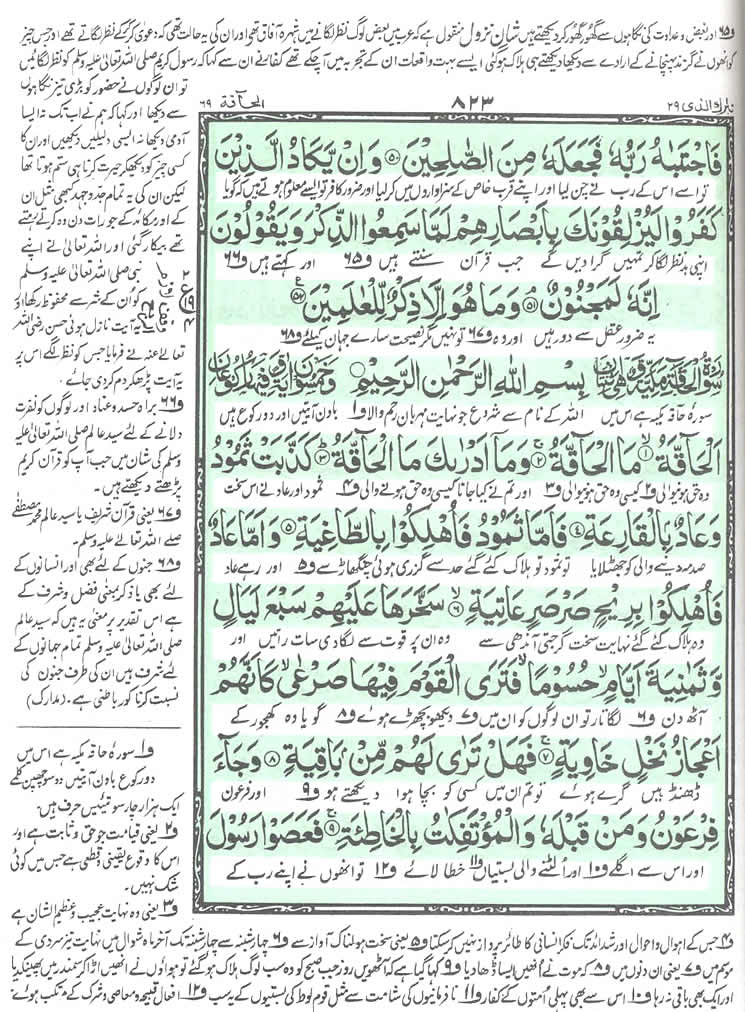 و۶۵ اور بغض و عداوت کی نگاہوں سے گھور گھور کر دیکھتے ہیں شان نزول منقول ہے کہ عرب میں بعض لوگ نظر لگانے میں شہرۂ آفاق تھے اور ان کی یہ حالت تھی کہ دعویٰ کر کر کے نظر لگاتے تھے اور جس چیز
کو انھوں نے گزند پہنچانے کے ارادے سے دیکھا دیکھتے ہی ہلاک ہو گئی ایسے بہت واقعات ان کے تجربہ میں آچکے تھے کفار نے ان سے کہا کہ رسول کریم صلی اللہ تعالیٰ علیہ وسلم کو نظر لگائیں
تبٰرک الذی ۲۹
۸۲۳
الحآقة ۶۹
فَاجْتَبٰىهُ رَبُّهٗ فَجَعَلَهٗ مِنَ الصّٰلِحِیْنَ ﴿۵۰﴾ وَ اِنْ یَّكَادُ الَّذِیْنَ
تو اسے اس کے رب نے چن لیا اور اپنے قرب خاص کے سزاواروں میں کر لیا اور ضرور کافر تو ایسے معلوم ہوتے ہیں کہ گویا
كَفَرُوْا لَیُزْلِقُوْنَكَ بِاَبْصَارِهِمْ لَمَّا سَمِعُوا الذِّكْرَ وَ یَقُوْلُوْنَ
اپنی بد نظر لگا کر تمہیں گرا دیں گے جب قرآن سنتے ہیں و۶۵ اور کہتے ہیں و۶۶
اِنَّهٗ لَمَجْنُوْنٌ ﴿۵۱﴾ وَ مَا هُوَ اِلَّا ذِكْرٌ لِّلْعٰلَمِیْنَ ﴿۵۲﴾
یہ ضرور عقل سے دور ہیں اور وہ و۶۷ تو نہیں مگر نصیحت سارے جہان کیلئے و۶۸
بِسْمِ اللّٰهِ الرَّحْمٰنِ الرَّحِیْمِ
سورۂ حاقہ مکیہ ہے اس میں اللہ کے نام سے شروع جو نہایت مہربان رحم والا و۱ باون آیتیں اور دو رکوع ہیں
اَلْحَآقَّةُ ﴿۱﴾ مَا الْحَآقَّةُ ﴿۲﴾ وَ مَاۤ اَدْرٰىكَ مَا الْحَآقَّةُ ﴿۳﴾ كَذَّبَتْ ثَمُوْدُ
وہ حق ہونیوالی و۲ کیسی وہ حق ہونیوالی و۳ اور تم نے کیا جانا کیسی وہ حق ہونے والی و۴ ثمود اور عاد نے اس سخت
وَ عَادٌۢ بِالْقَارِعَةِ ﴿۴﴾ فَاَمَّا ثَمُوْدُ فَاُهْلِكُوْا بِالطَّاغِیَةِ ﴿۵﴾ وَ اَمَّا عَادٌ
صدمہ دینے والی کو جھٹلایا تو ثمود تو ہلاک کئے گئے حد سے گزری ہوئی چنگھاڑ سے و۵ اور رہے عاد
فَاُهْلِكُوْا بِرِیْحٍ صَرْصَرٍ عَاتِیَةٍ ﴿۶﴾ سَخَّرَهَا عَلَیْهِمْ سَبْعَ لَیَالٍ
وہ ہلاک کئے گئے نہایت سخت گرجتی آندھی سے وہ ان پر قوت سے لگا دی سات راتیں اور
وَّ ثَمٰنِیَةَ اَیَّامٍ حُسُوْمًا فَتَرَی الْقَوْمَ فِیْهَا صَرْعٰی كَاَنَّهُمْ
آٹھ دن و۶ لگاتار تو ان لوگوں کو ان میں و۷ دیکھو بچھڑے ہوئے و۸ گویا وہ کھجور کے
اَعْجَازُ نَخْلٍ خَاوِیَةٍ ﴿۷﴾ فَهَلْ تَرٰی لَهُمْ مِّنْۢ بَاقِیَةٍ ﴿۸﴾ وَ جَآءَ
ڈھنڈ ہیں گرے ہوئے تو تم ان میں کسی کو بچا ہوا دیکھتے ہو و۹ اور فرعون
فِرْعَوْنُ وَ مَنْ قَبْلَهٗ وَ الْمُؤْتَفِكٰتُ بِالْخَاطِئَةِ ﴿۹﴾ فَعَصَوْا رَسُوْلَ
اور اس سے اگلے و۱۰ اور اُلٹنے والی بستیاں و۱۱ خطا لائے و۱۲ تو انھوں نے اپنے رب کے
تو ان لوگوں نے حضور کو بڑی تیز نگاہوں
سے دیکھا اور کہا کہ ہم نے اب تک نہ ایسا
آدمی دیکھا نہ ایسی دلیلیں دیکھیں اور ان کا
کسی چیز کو دیکھ کر حیرت کرنا ہی ستم ہوتا تھا
لیکن ان کی یہ تمام جد و جہد کبھی مثل ان
کے اور مکائد کے جو رات دن وہ کرتے رہتے
تھے بیکار گئی اور اللہ تعالیٰ نے اپنے
نبی صلی اللہ تعالیٰ علیہ وسلم
کو ان کے شر سے محفوظ رکھا اور
یہ آیت نازل ہوئی حسن رضی اللہ
تعالےٰ عنہ نے فرمایا جس کو نظر لگے اس پر
یہ آیت پڑھ کر دم کر دی جائے۔
و۶۶ براہ حسد و عناد اور لوگوں کو نفرت
دلانے کے لئے سید عالم صلی اللہ تعالیٰ علیہ
وسلم کی شان میں جب آپ کو قرآن کریم
پڑھتے دیکھتے ہیں۔
و۶۷ یعنی قرآن شریف یا سید عالم محمد مصطفےٰ
صلے اللہ تعالےٰ علیہ وسلم۔
و۶۸ جنوں کے لئے بھی اور انسانوں کے
لئے بھی یا ذکر بمعنی فضل و شرف کے
ہے اس تقدیر پر معنی یہ ہیں کہ سید عالم
صلی اللہ تعالیٰ علیہ وسلم تمام جہانوں کے
لئے شرف ہیں ان کی طرف جنون کی
نسبت کرنا کور باطنی ہے۔ (مدارک)
و۱ سورۂ حاقہ مکیہ ہے اس میں
دو رکوع باون آیتیں دو سو چھپن کلمے
ایک ہزار چار سو تئیس حرف ہیں۔
و۲ یعنی قیامت جو حق و ثابت ہے اور
اس کا وقوع یقینی و قطعی ہے جس میں کوئی
شک نہیں۔
و۳ یعنی وہ نہایت عجیب و عظیم الشان ہے
و۴ جس کے اہوال و احوال اور شدائد تک فکر انسانی کا طائر پرواز نہیں کر سکتا و۵ یعنی سخت ہولناک آواز سے و۶ چہار شنبہ سے چہار شنبہ تک آخر ماہ شوال میں نہایت تیز سردی کے
موسم میں و۷ یعنی ان دنوں میں و۸ کہ موت نے انھیں ایسا ڈھا دیا و۹ کہا گیا ہے کہ آٹھویں روز جب صبح کو وہ سب لوگ ہلاک ہو گئے تو ہواؤں نے انھیں اڑا کر سمندر میں پھینک دیا
اور ایک بھی باقی نہ رہا و۱۰ اس سے بھی پہلی اُمتوں کے کفار و۱۱ نافرمانیوں کی شامت سے مثل قوم لوط کی بستیوں کے یہ سب و۱۲ افعال قبیحہ و معاصی و شرک کے مرتکب ہوئے